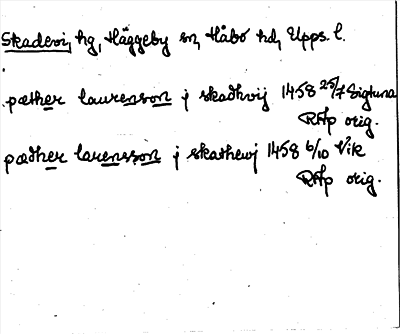 Skadevi, hg, Häggeby sn, Håbo hd, Upps. l.
pæther laurenson j skadhvij 1458 25/7 Sigtuna
RAp orig.
pædher larensson j skathewj 1458 6/10 Vik
RAp orig.